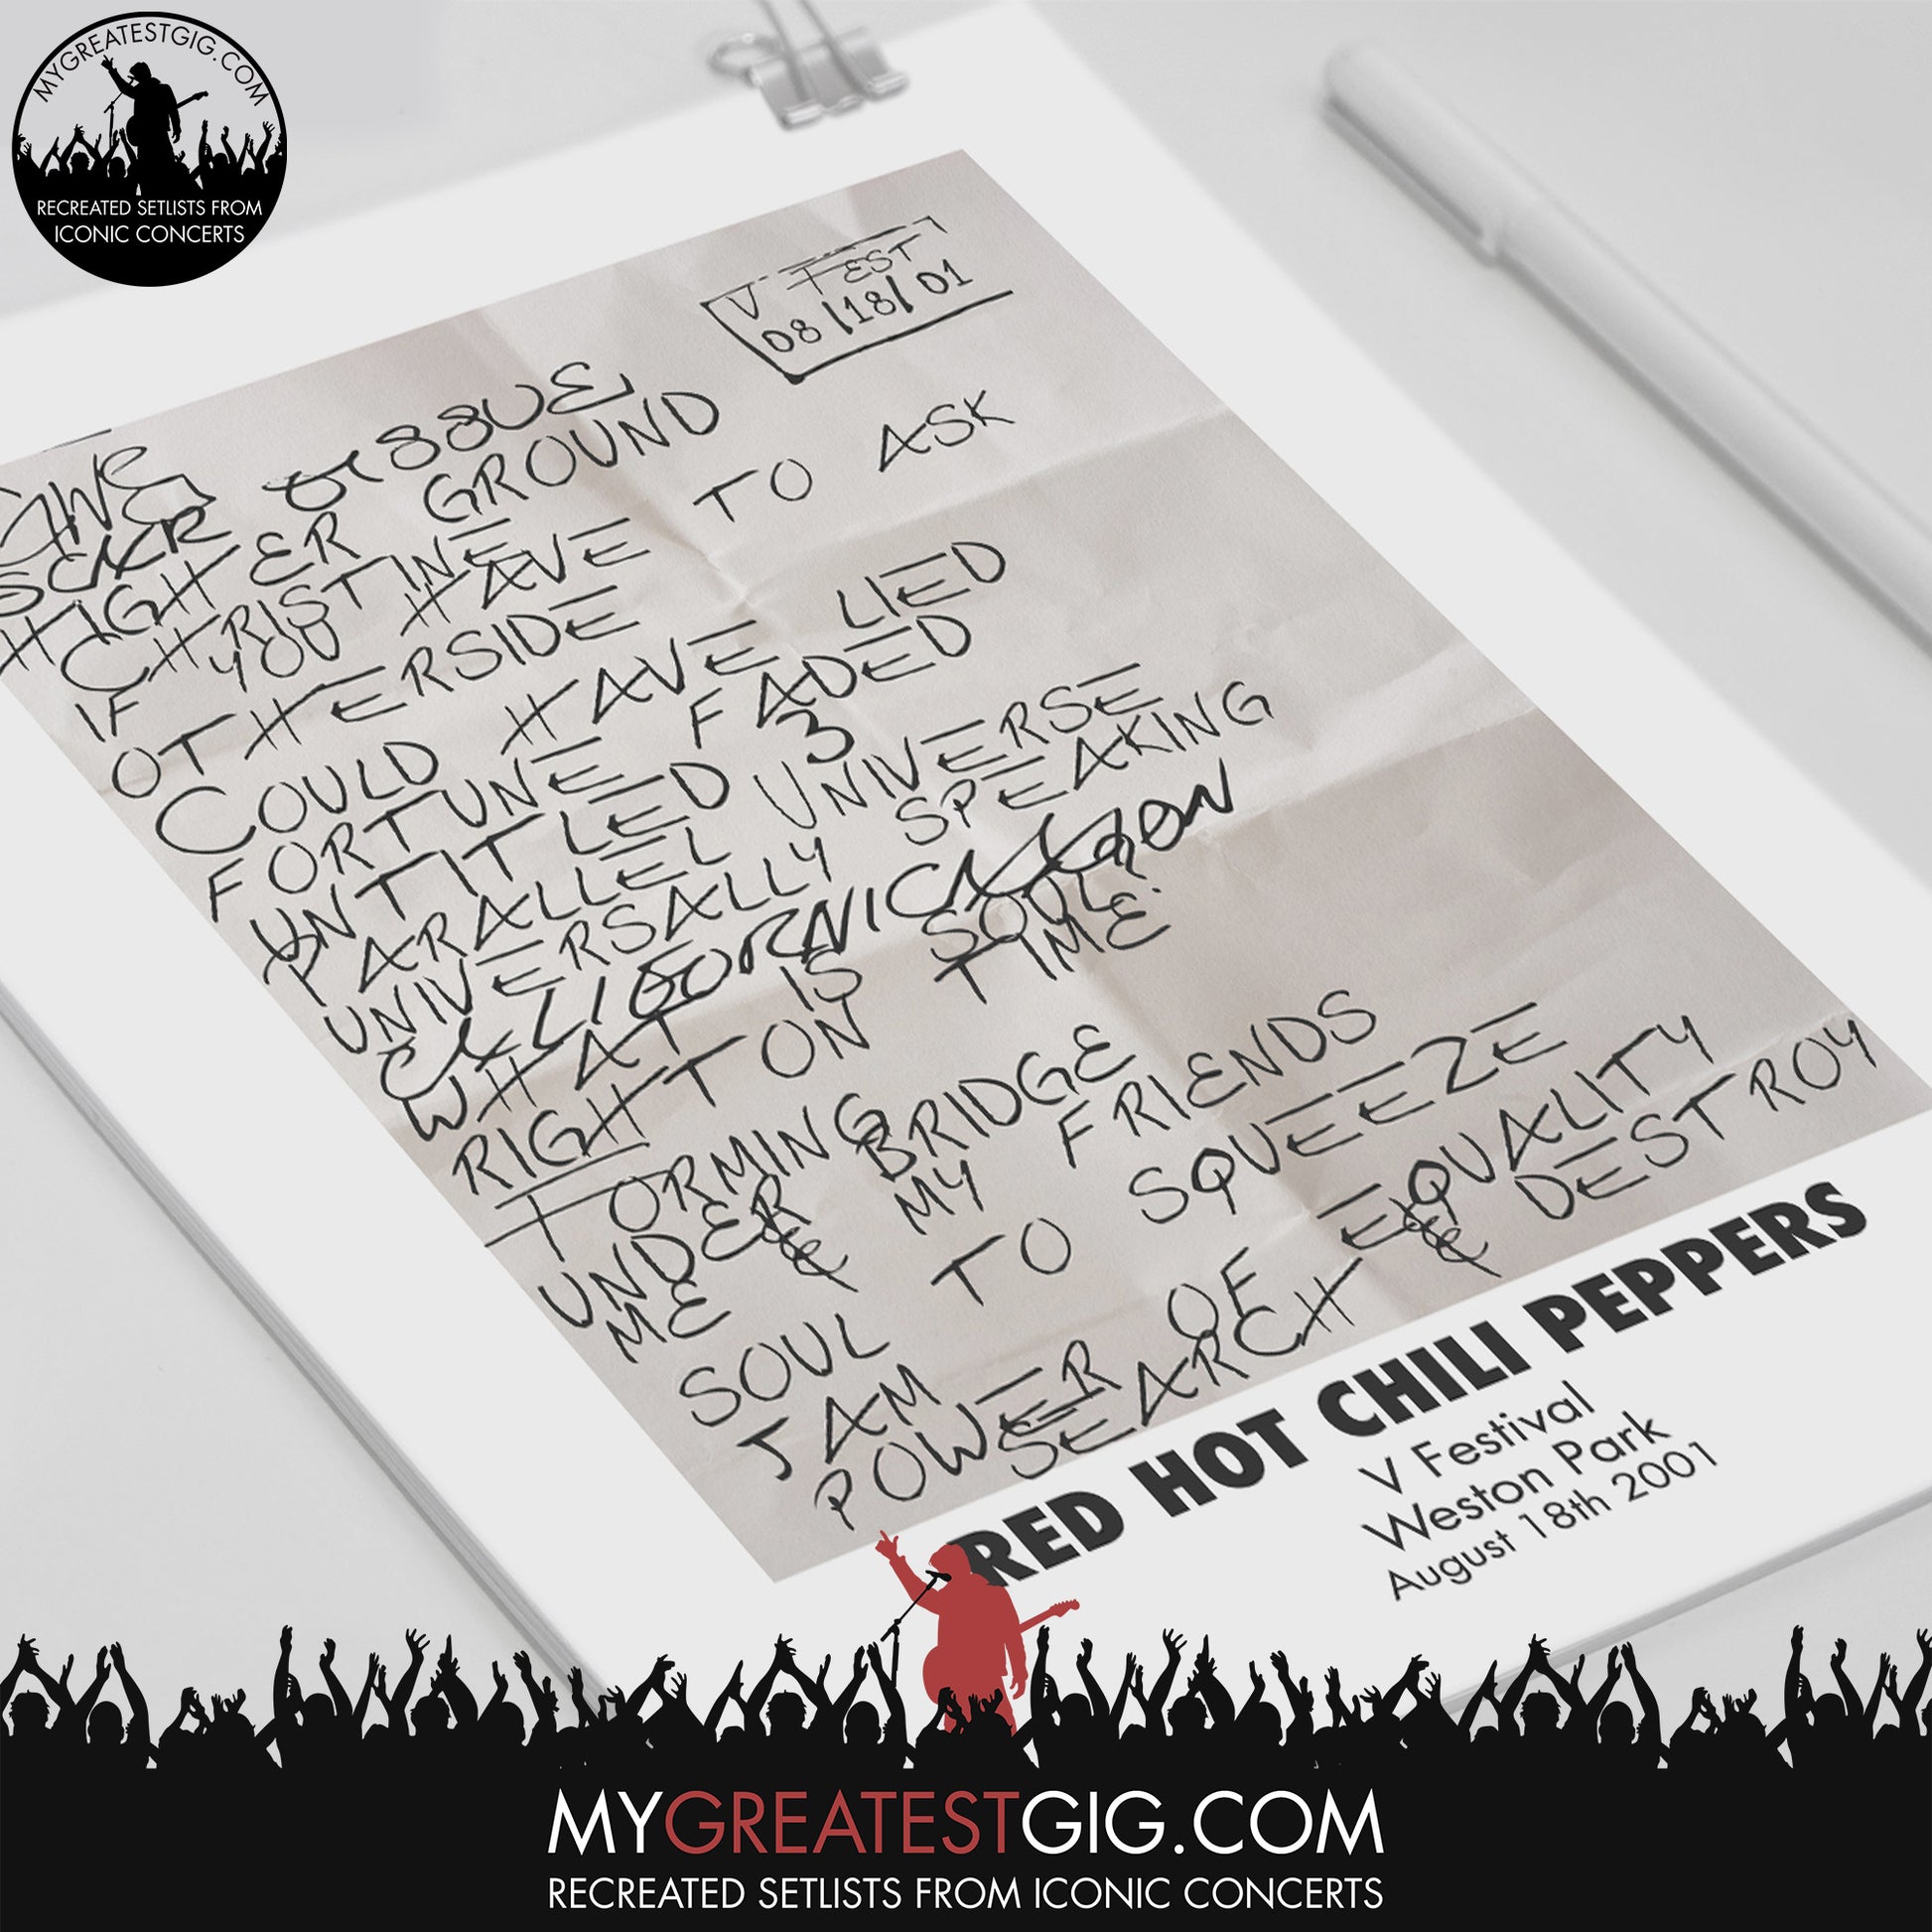 MYGREATESTGIG.COM
RECREATED SETLISTS FROM
ICONIC CONCERTS
V FEST
08/18/01
GROUND
HIGH ER
CHRISTINE
IF YOU HAVE TO ASK
OTHERSIDE
COULD HAVE LIED
FORTUNE FADED
UNTITLED 3
PARALLEL UNIVERSE
UNIVERSALLY SPEAKING
CALIFORNICATION
WHAT IS SOUL
RIGHT ON TIME
FORMING
UNDER BRIDGE
ME & MY FRIENDS
SOUL TO SQUEEZE
JAM
POWER OF EQUALITY
SEARCH & DESTROY
RED HOT CHILI PEPPERS
V Festival
Weston Park
August 18th 2001
MYGREATESTGIG.COM
RECREATED SETLISTS FROM ICONIC CONCERTS